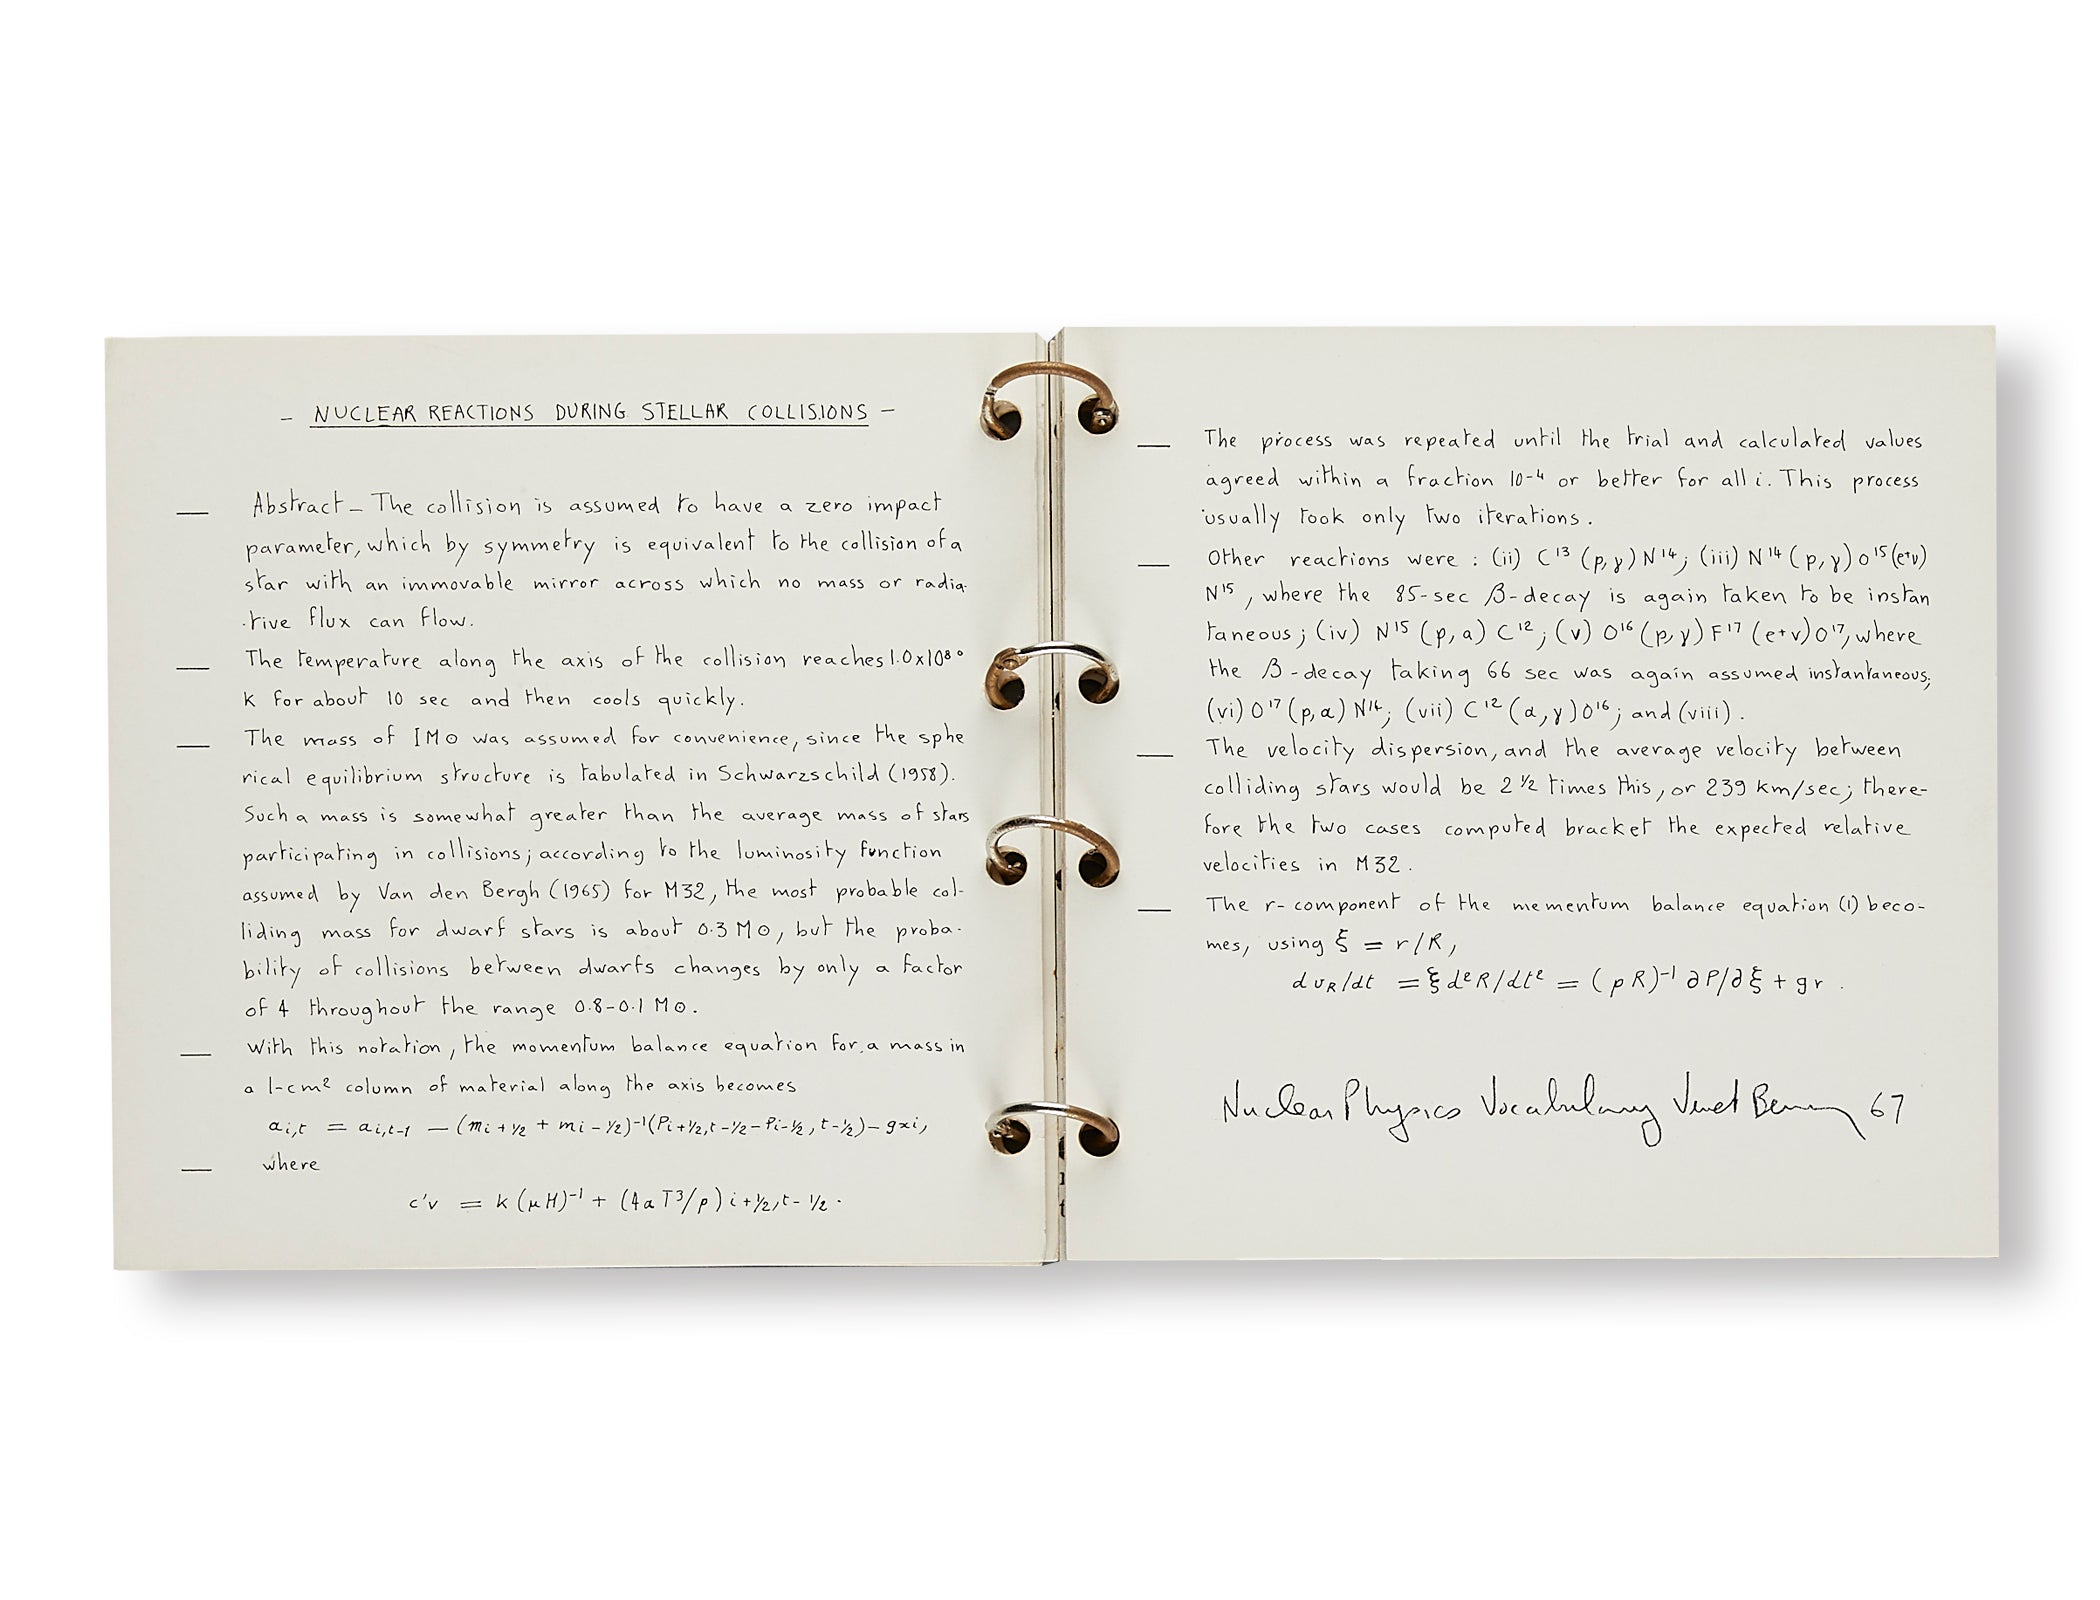 – NUCLEAR REACTIONS DURING STELLAR COLLISIONS –
— Abstract – The collision is assumed to have a zero impact
parameter, which by symmetry is equivalent to the collision of a
star with an immovable mirror across which no mass or radia-
tive flux can flow.
— The temperature along the axis of the collision reaches 1.0x10⁸°
K for about 10 sec and then cools quickly.
— The mass of 1M⊙ was assumed for convenience, since the sphe
rical equilibrium structure is tabulated in Schwarzschild (1958).
Such a mass is somewhat greater than the average mass of stars
participating in collisions; according to the luminosity function
assumed by Van den Bergh (1965) for M32, the most probable col-
liding mass for dwarf stars is about 0.3 M⊙, but the proba-
bility of collisions between dwarfs changes by only a factor
of 4 throughout the range 0.8–0.1 M⊙.
— With this notation, the momentum balance equation for a mass in
a 1-cm² column of material along the axis becomes
ai,t = ai,t-1 – (mi+1/2 + mi-1/2)⁻¹(Pi+1/2,t-1/2–Pi-1/2,t-1/2)–gxi,
— where
c'v = k(μH)⁻¹ + (4aT³/ρ)i+1/2,t-1/2.
— The process was repeated until the trial and calculated values
agreed within a fraction 10-4 or better for all i. This process
usually took only two iterations.
— Other reactions were : (ii) C¹³(p,γ)N¹⁴; (iii) N¹⁴(p,γ)O¹⁵(e+ν)
N¹⁵, where the 85-sec β-decay is again taken to be instan
taneous; (iv) N¹⁵(p,α)C¹²; (v) O¹⁶(p,γ)F¹⁷(e+ν)O¹⁷, where
the β-decay taking 66 sec was again assumed instantaneous;
(vi) O¹⁷(p,α)N¹⁴; (vii) C¹²(α,γ)O¹⁶; and (viii).
— The velocity dispersion, and the average velocity between
colliding stars would be 2 1/2 times this, or 239 km/sec; there-
fore the two cases computed bracket the expected relative
velocities in M32.
— The r-component of the mementum balance equation (1) beco-
mes, using ξ = r/R,
dvR/dt = ξd²R/dt² = (ρR)⁻¹ ∂P/∂ξ + gr.
Nuclear Physics Vocabulary 67